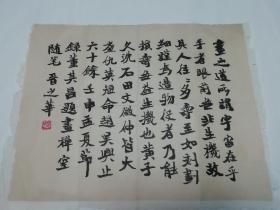 畫之道所謂宇宙在乎
手者眼前無非生機故
其人往々多壽至如刻劃
細謹為造物役者乃能
損壽盖無生機也黃子
久沈石田文徵仲皆大
耋仇英短命趙吳興止
六十餘壬申孟夏節
錄董其昌題畫禪室
随笔 晉之華